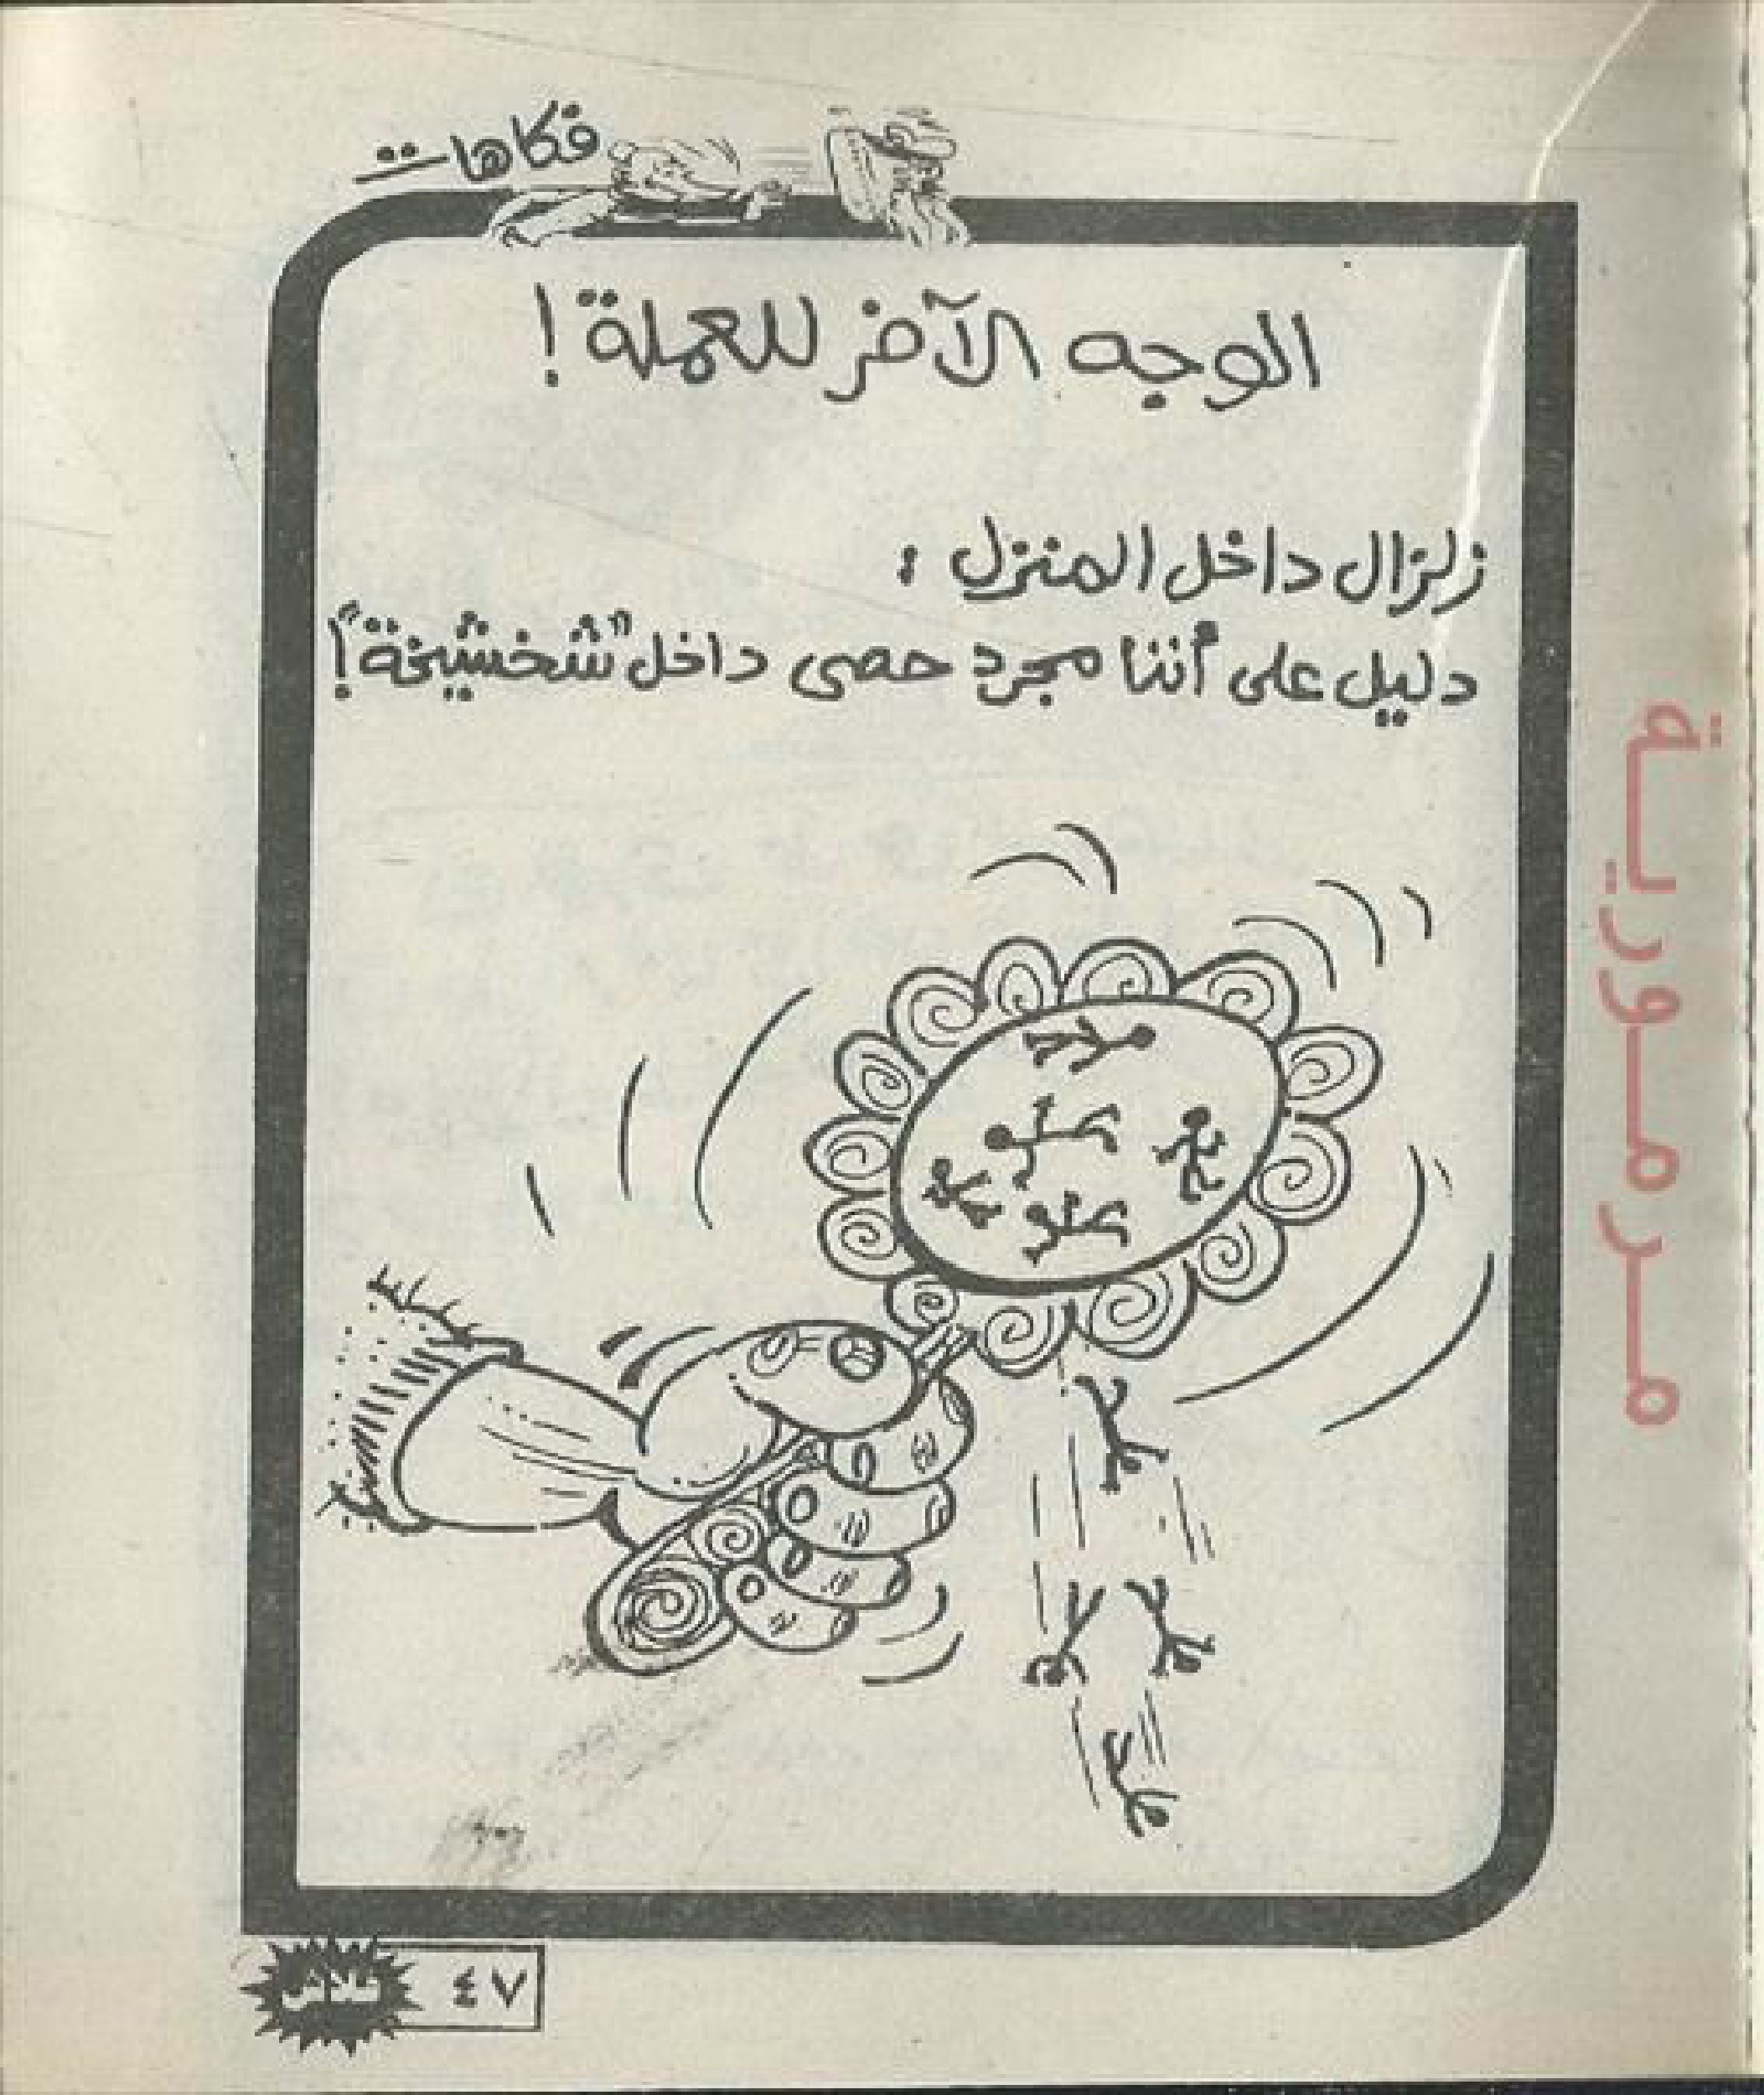 فكاهات
الوجه الآخر للعملة !
زلزال داخل المنزل :
دليل على أننا مجرد حصى داخل "شخشيخة"!
مرمورية
٤٧